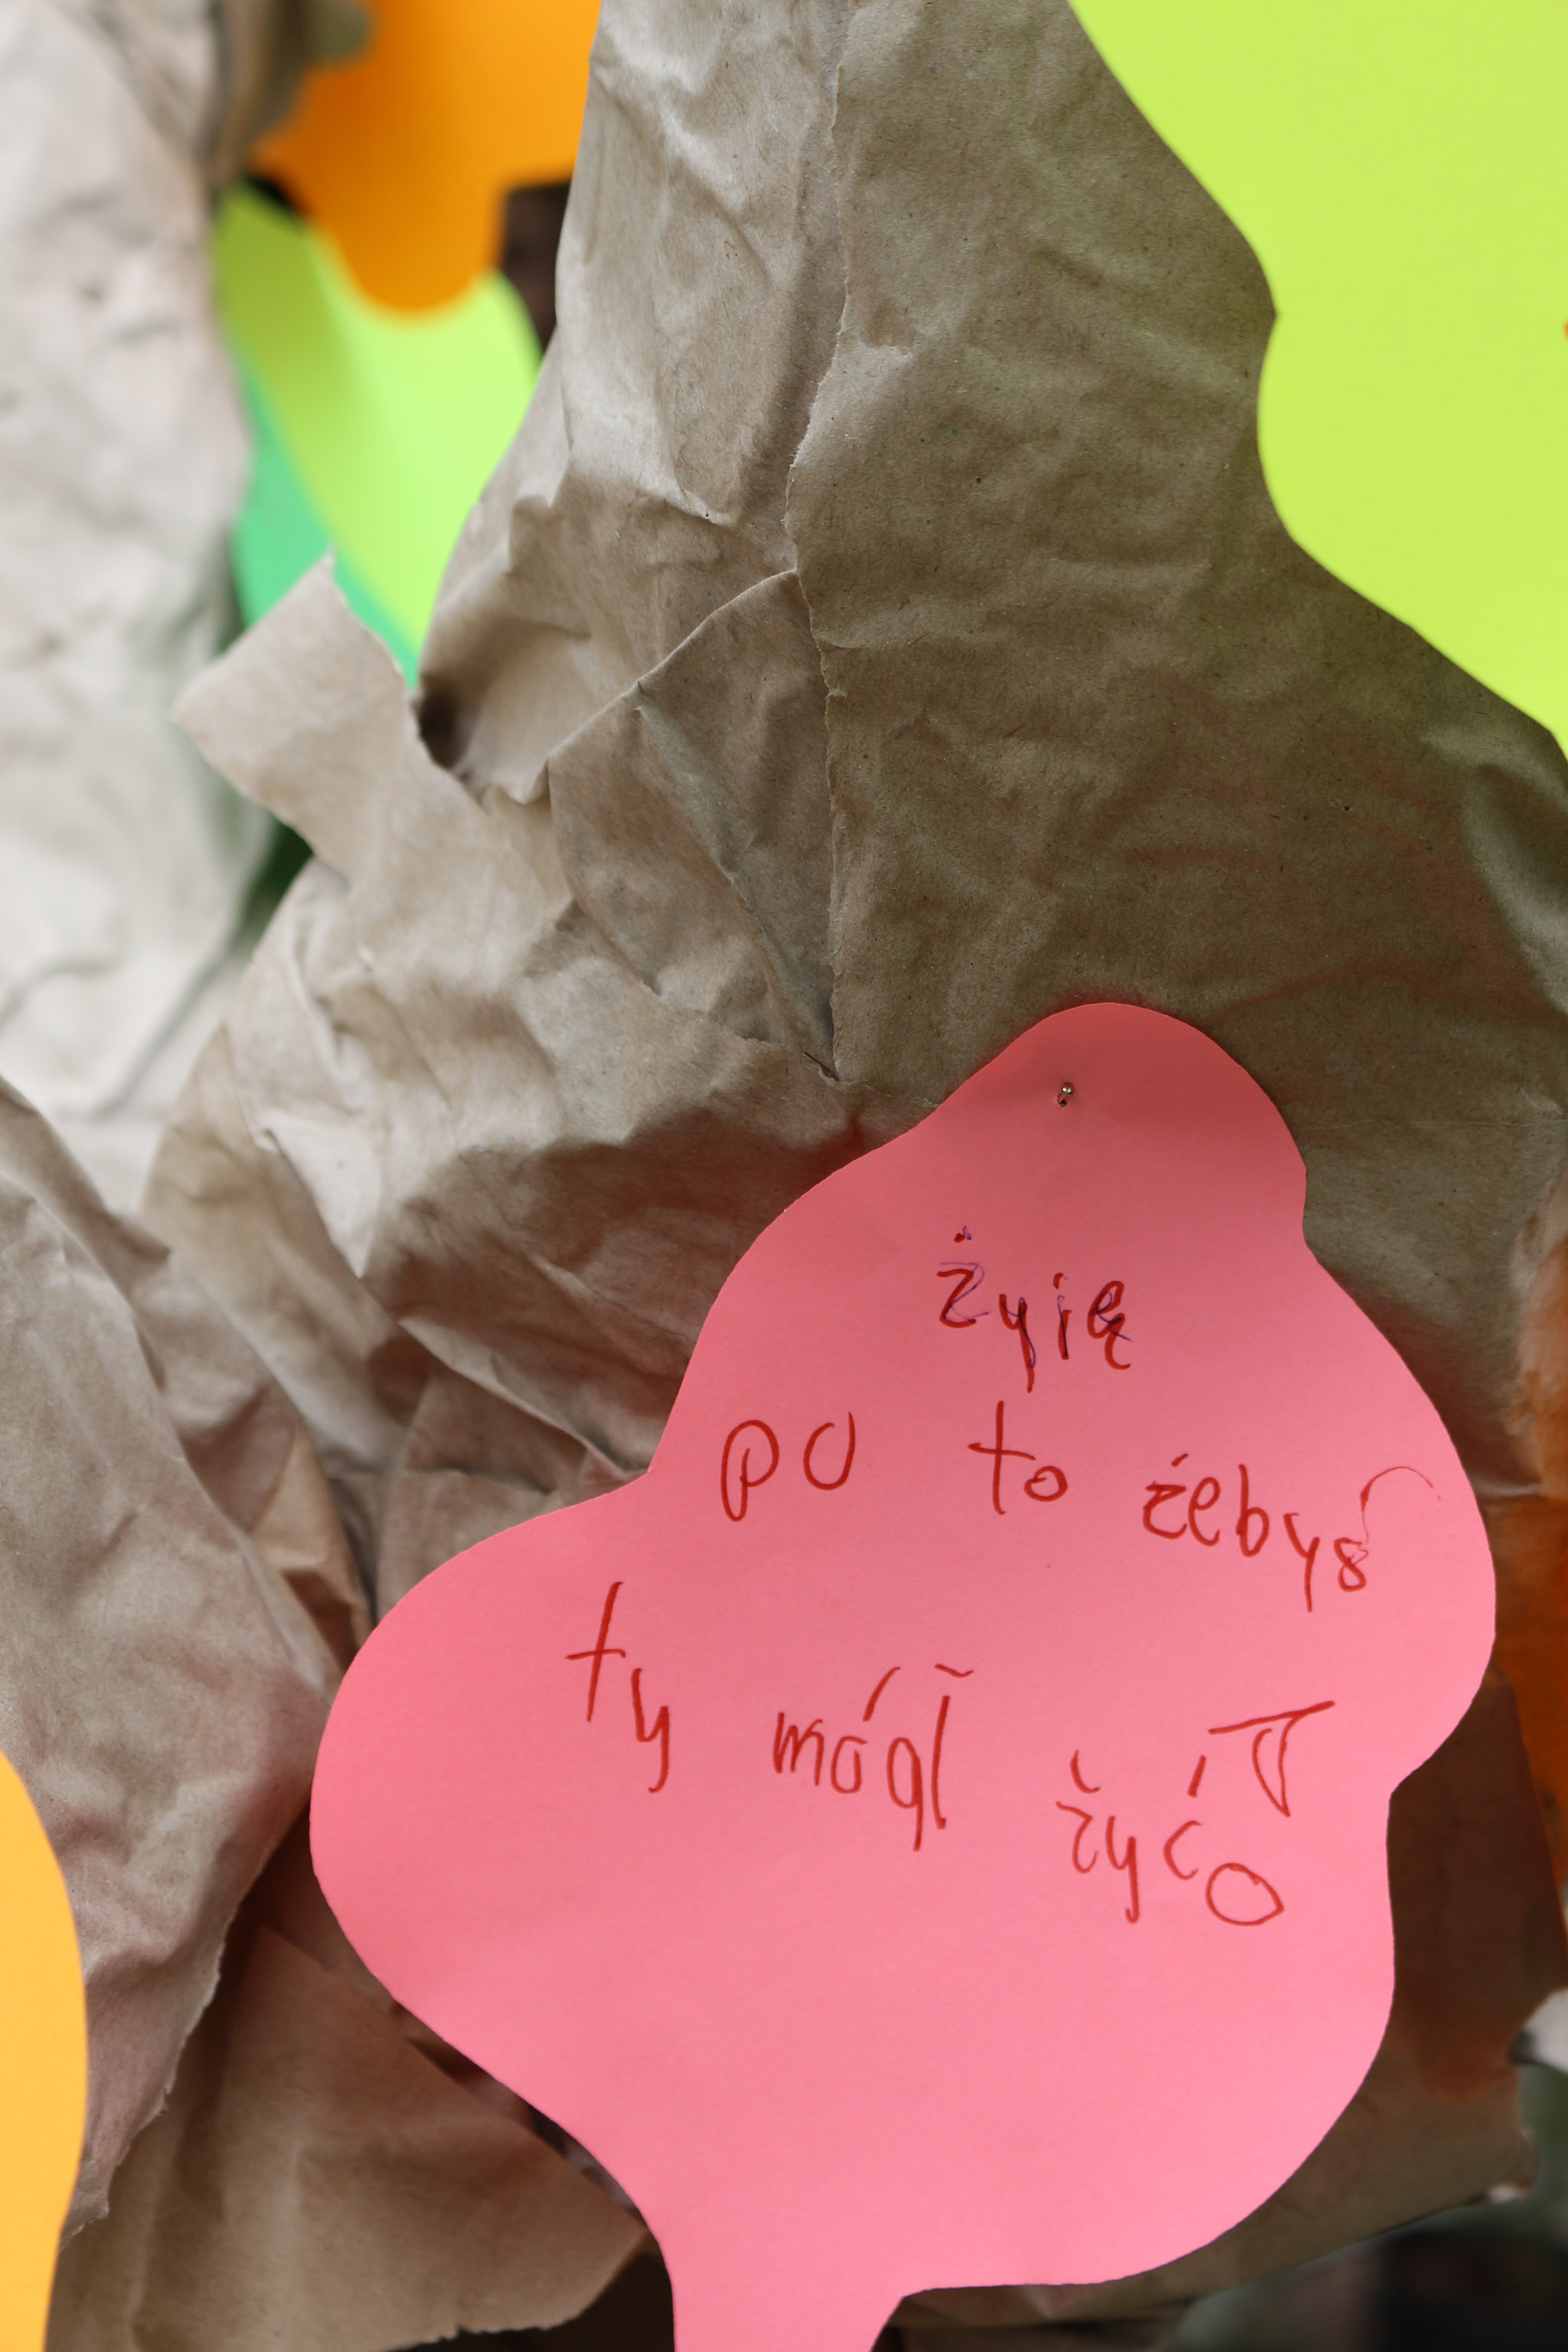 żyję
po to żebyś
ty mógł
żyć!